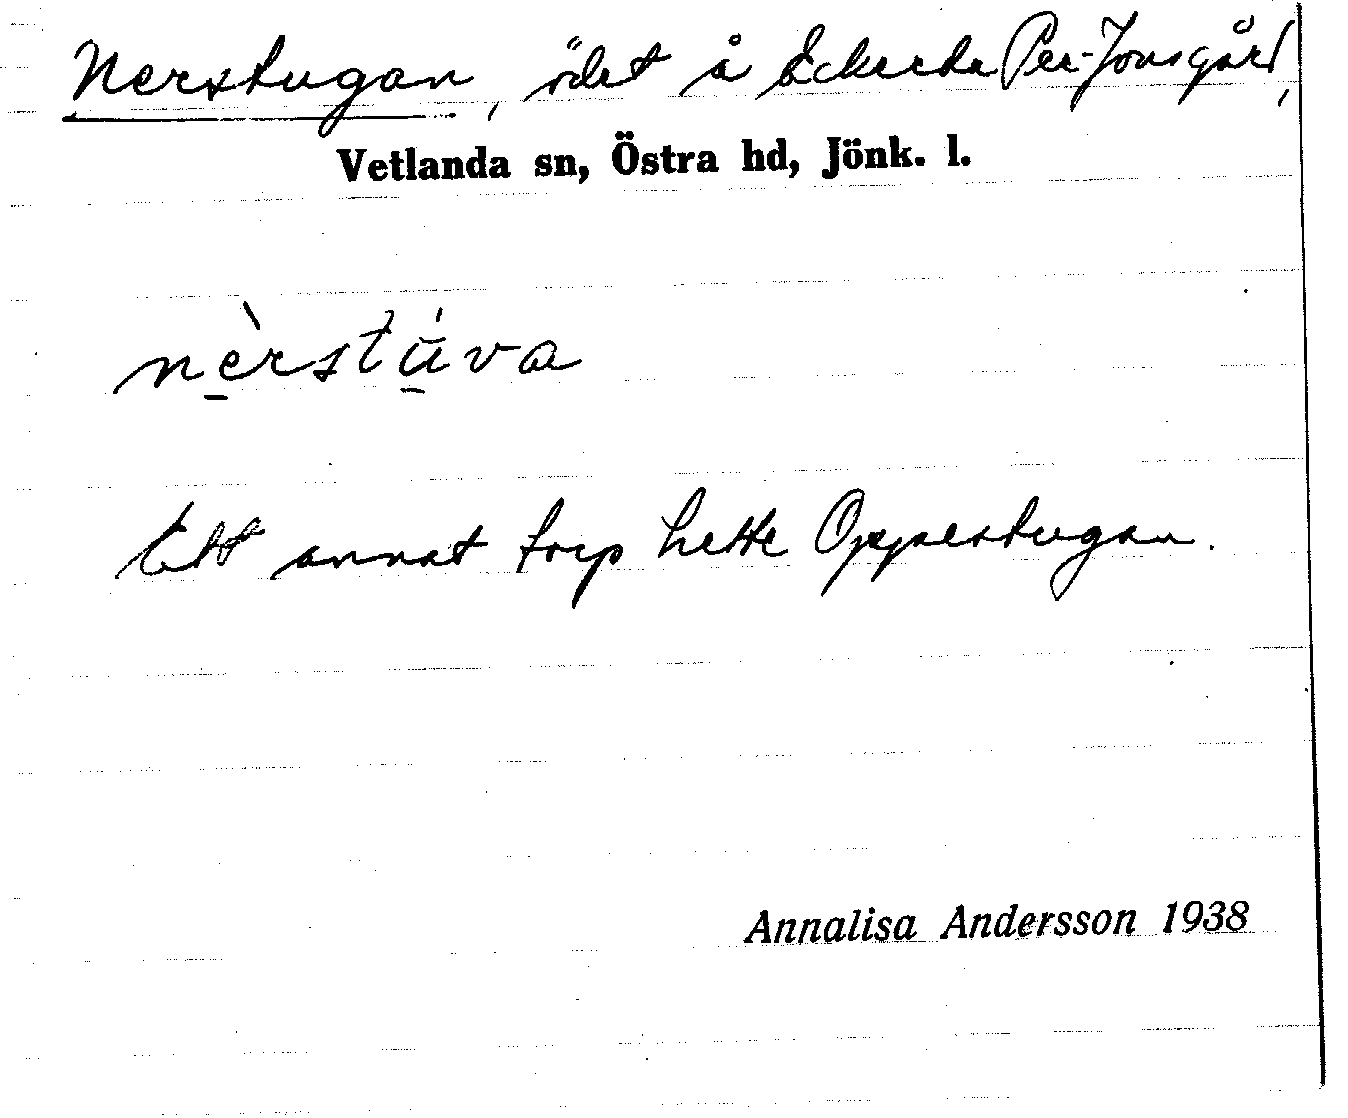 Nerstugan, ödet å Eckerda Per-Jonsgård,
Vetlanda sn, Östra hd, Jönk. l.
nèrstúva
Ett annat torp hette Opperstugan.
Annalisa Andersson 1938